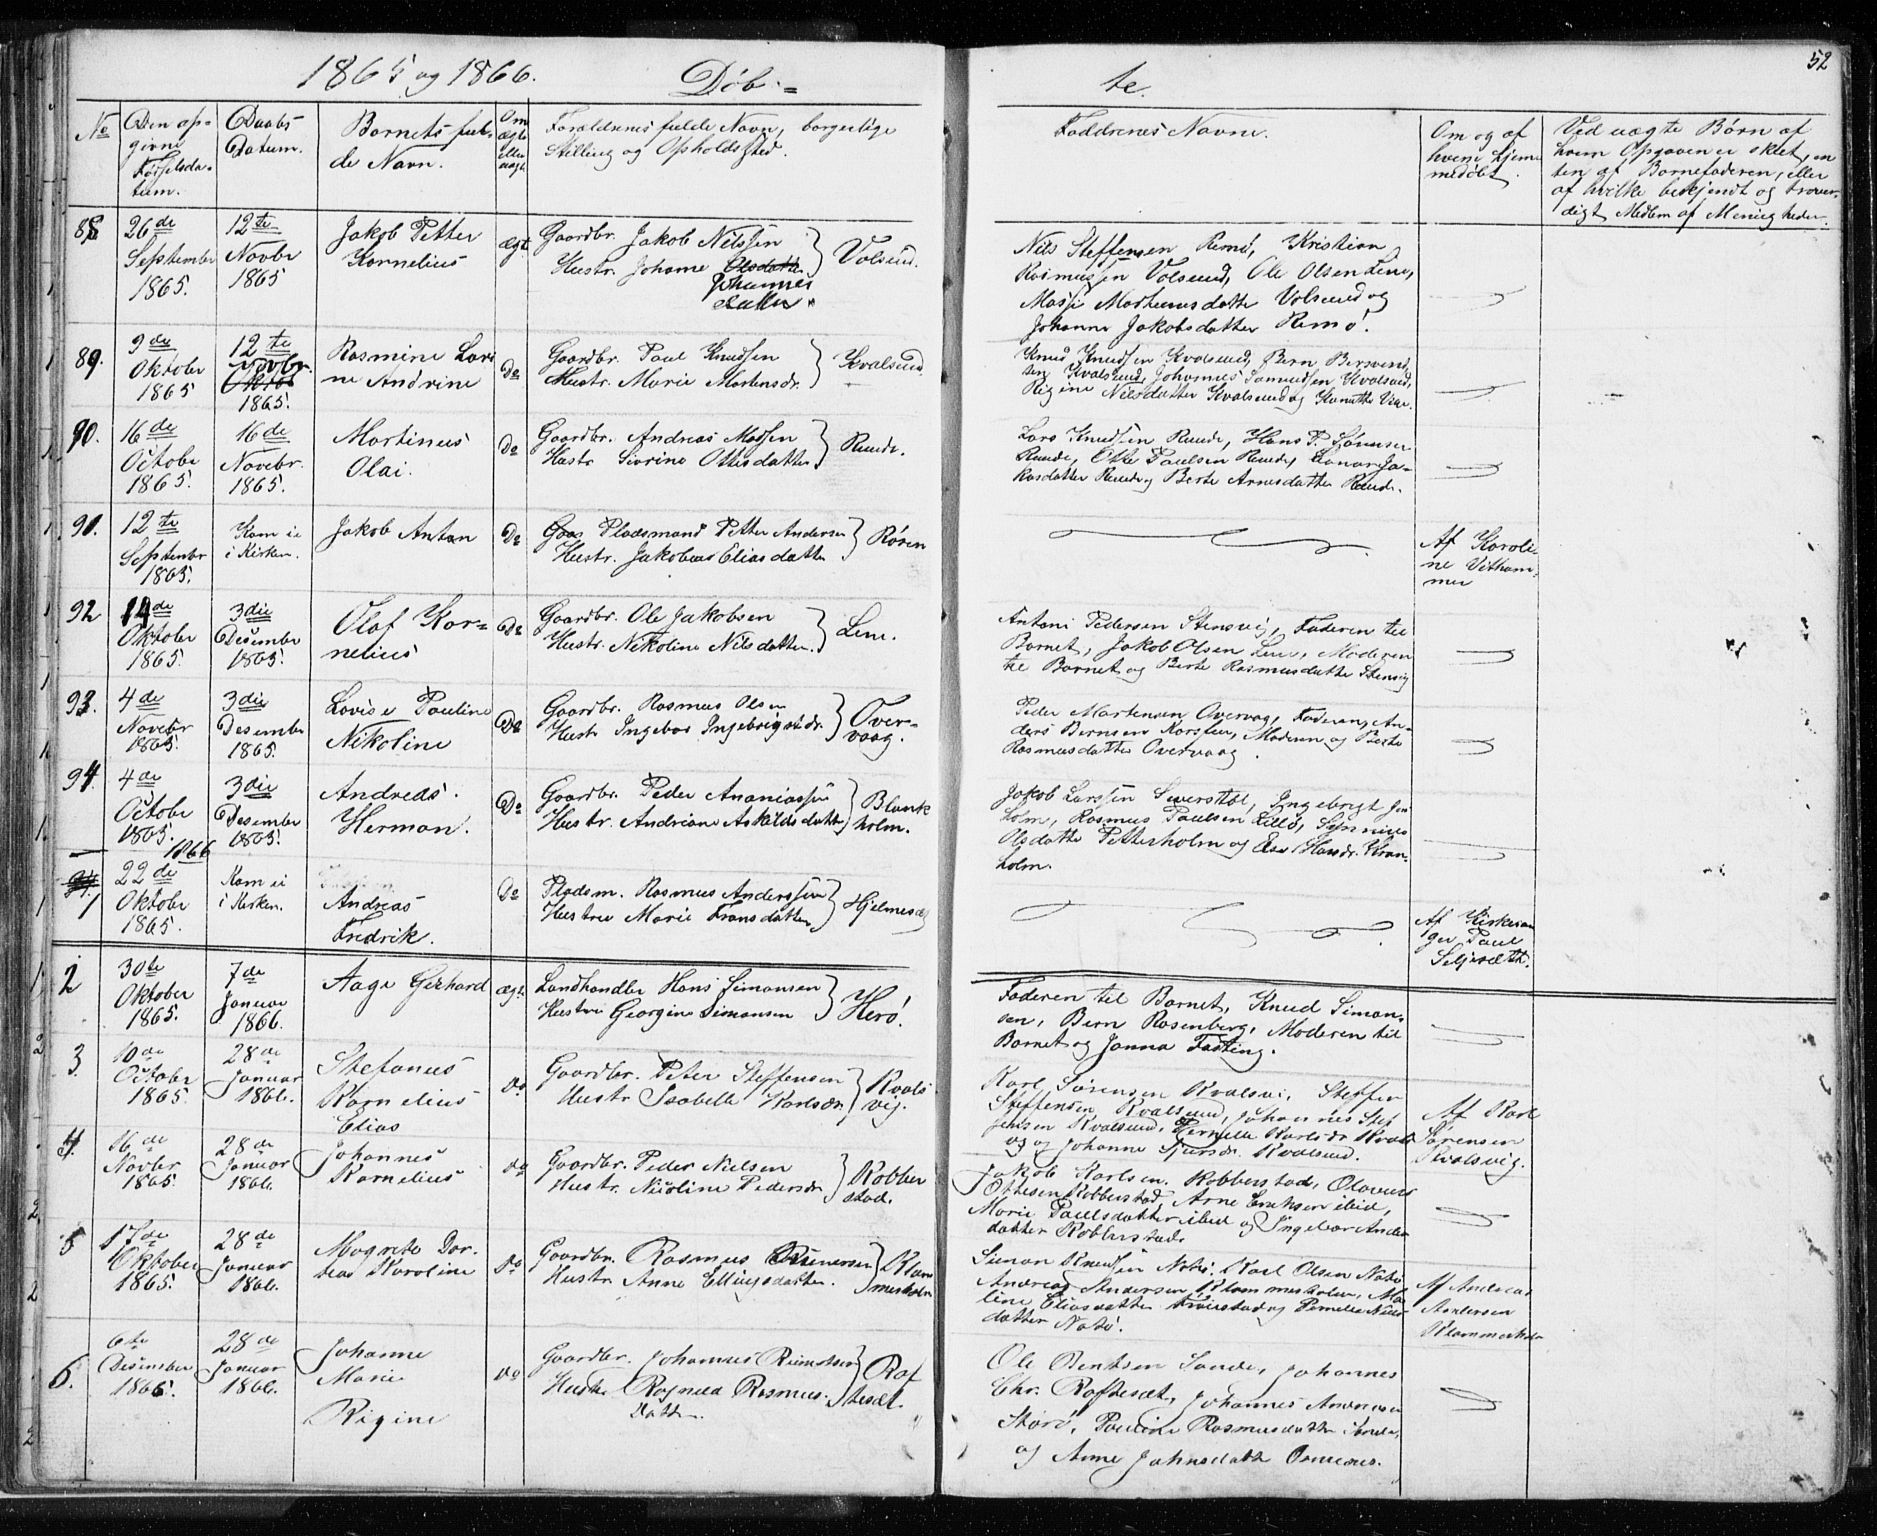 52
1865 og 1866. Døb=
te.
No
Den op=
givne
Fødselsda=
tum.
Daabs
Datum.
Barnets ful=
de Navn.
Om
ægte
eller
uægte
Forældrenes fulde Navn, borgerlige
Stilling og Opholdssted.
Faddrenes Navne.
Om og af
hvem hjem=
medøbt.
Ved uægte Børn af
hvem Opgaven er skeet, en
ten af Barnefaderen, eller
af hvilke bekjendt og trover=
digt Medlem af Menigheden.
88
26de
September
1865.
12te
Novbr
1865
Jakob Petter
Kornelius
ægt.
Gaardbr. Jakob Nilssen
Hustr. Johanne Olsdatter
Johannes
datter
Volsund.
Nils Steffensen Remø, Kristian
Rasmussen Volsund, Ole Olsen Line,
Massi Marthinusdatter Volsund og
Johanne Jakobsdatter Remø.
89.
9de
Oktober
1865
12te
Novbr.
Oktob
1865.
Rasmine Lovi
ne Andrine
Do
Gaardbr. Paul Knudsen
Hustr. Marie Martensdr.
Kvalsund
Knud Knudsen Kvalsund, Bern Bernsend
sen Kvalsund, Johannes Samuelsen Kvalsund,
Rigine Nilsdatter Kvalsund og
90.
16de
October
1865.
16de
Novebr.
1865.
Martinus
Olai.
Do
Gaardbr. Andreas Madsen
Hustr Sivrine Ottesdatter
Runde.
Lars Knudsen Runde, Hans P. Sørensen
Runde, Otte Paulsen Runde, Lanar Ja=
kosdatter Runde og Berte Arnesdatter Runde.
91.
12te
September
1865.
Kom ei
i Kirken.
Jakob Anton
Do
Gaas Pladsmand Petter Andersen
Hustr. Jakobea Eliasdatter
Røren
Af Karoli=
ne Vitham=
mer
92
14de
Oktober
1865.
3die
Desember
1865.
Olaf Kor=
nelius
Do
Gaardbr. Ole Jakobsen
Hustr. Nikoline Nilsdatter.
Line.
Antoni Pedersen Stensvig, Faderen til
Barnet, Jakob Olsen Line, Moderen
til Barnet og Berte Rasmusdatter Stensvig
93.
4de
Novebr
1865.
3die
Desember
1865.
Lovise Pauline
Nikoline
Do
Gaardbr. Rasmus Olsen
Hustr Ingebor Ingebrigstdr.
Over=
vaag.
Peder Martensen Overvag, Faderen, An=
ders Bernsen Korshen, Moderen og Berte
Rasmusdatter Overvaag
94.
4de
October
1865.
3die
Desember
1865.
Andreas
Herman.
Do
Gaardbr. Peder Ananiassen
Hustr. Andriane Askildsdatter
Blank
holm.
Jakob Larssen Sæverstøl, Ingebrigt
holm, Rasmus Paulsen Lillø, Synnive
Olsdatter Petterholm og Else Hansdr. Kran=
holm.
1866
1
22de
Oktober
1865.
Kom ei
i Kirken.
Andreas
Fredrik.
Do
Pladsm. Rasmus Anderssen
Hustru Marie Fransdatter
Hjelmesæt
Af Kirkesan
ger Paul
Seljesæth.
2
30te
Oktober
1865.
7de
Januar
1866.
Aage Gerhard
ægt.
Landhandler Hans Simonsen
Hustru Georgine Simonsen
Herø.
Faderen til Barnet, Knud Simon=
sen, Bern Rosenberg, Moderen til
Barnet og Janna Fasting.
3
10de
October
1865
28de
Januar
1866.
Stefanus
Kornelius
Elias
do
Gaardbr. Peter Steffensen
Hustr. Isabella Karlsdr.
Kvals
vig.
Karl Sørensen Kvalsvi, Steffen
Steffensen Kvalsund, Johannes Stef
fensen Kvalsund, Pernille Karlsdr Kvals
vg og Johanne Sjursdr. Kvalsund.
Af Karl
Sørensen
Kvalsvig.
4.
16de
Novbr
1865
28de
Januar
1866.
Johannes
Kornelius
do
Gaardbr. Peder Nielsen
Hustr. Nicoline Pedersdr
Kobber
stad.
Jakob Karlsen Kobberstad, Olavus
Ottesen Kobberstad Arne Eriksen ibid,
Marie Paulsdatter ibid og Ingebor Anders
datter Kobberstad.
5
17de
Oktober
1865.
28de
Januar
1866.
Magrete Dor=
thea Karoline
do
Gaardbr. Rasmus
Hustr Anne Ellingsdatter.
Klam
mesholm
Simon Knudsen Natø, Karl Olsen Natø
Andreas Andersen Klammesholm, Ma
line Eliasdatter og Pernelle Nils
datter Natø.
Af Andreas
Andersen
Klammesholm
6.
6te
Desember
1865.
28de
Januar
1866.
Johanne
Marie
Rigine
do
Gaardbr. Johannes
Hustr Ragnild Rasmus=
datter.
Raf
tesæt.
Ole Bentsen Sande, Johannes
Chr. Raftesæt, Johannes Andersen
Storø, Pauline Rasmusdatter
og Anne Johnsdatter